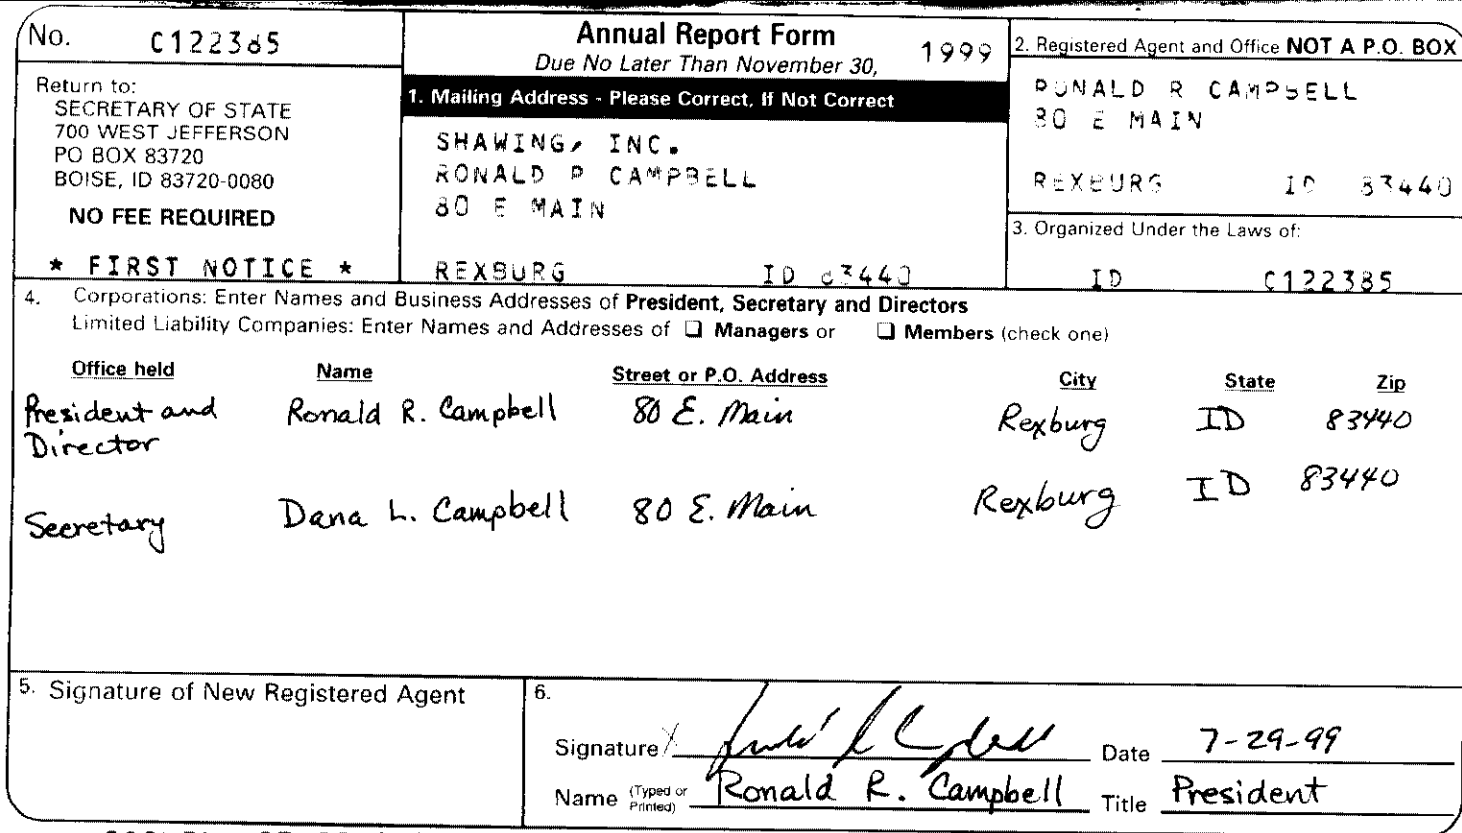 No. C122385
Annual Report Form
Due No Later Than November 30, 1999
Return to:
SECRETARY OF STATE
700 WEST JEFFERSON
PO BOX 83720
BOISE, ID 83720-0080
NO FEE REQUIRED
* FIRST NOTICE *
1. Mailing Address - Please Correct, If Not Correct
SHAWING, INC.
RONALD R CAMPBELL
80 E MAIN
REXBURG ID 83440
2. Registered Agent and Office NOT A P.O. BOX
RONALD R CAMPBELL
80 E MAIN
REXBURG ID 83440
3. Organized Under the Laws of:
ID C122385
4. Corporations: Enter Names and Business Addresses of President, Secretary and Directors
Limited Liability Companies: Enter Names and Addresses of ❑ Managers or ❑ Members (check one)
Office held Name Street or P.O. Address City State Zip
President and Ronald R. Campbell 80 E. Main Rexburg ID 83440
Director
Secretary Dana L. Campbell 80 E. Main Rexburg ID 83440
5. Signature of New Registered Agent
6.
Signature X Date 7-29-99
Name (Typed or Printed) Ronald R. Campbell Title President